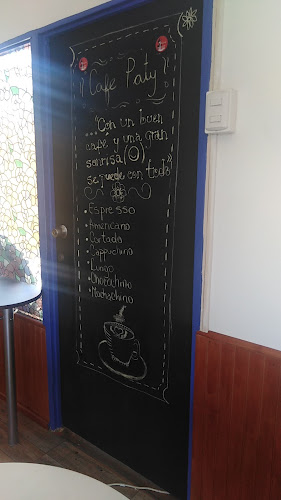 "Café Paty"
"Con un buen
...café y una gran
sonrisa
se puede con todo"
• Espresso
• Americano
• Cortado
• Cappuchino
• Lungo
• Chocachino
• Mochachino